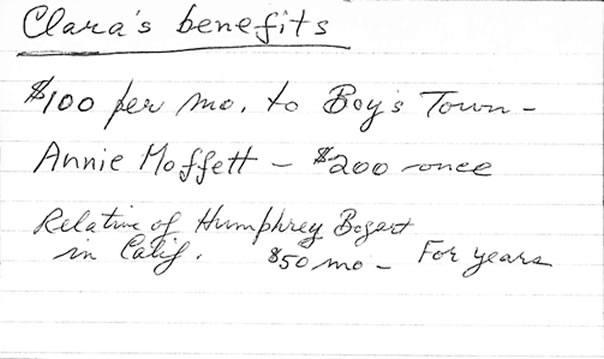 Clara's benefits
$100 per mo. to Boy's Town -
Annie Moffett - $200 once
Relative of Humphrey Bogart
in Calif. $50 mo - For years